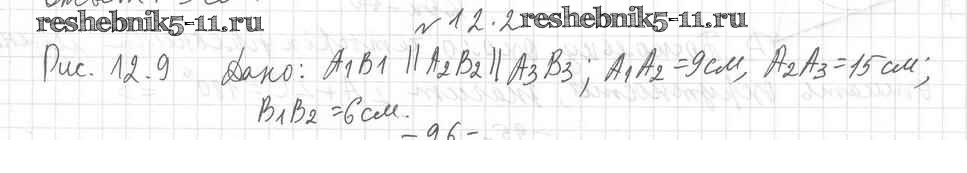 reshebnik5-11.ru № 12.2 reshebnik5-11.ru
Рис. 12.9 Дано: A1B1 || A2B2 || A3B3; A1A2=9см, A2A3=15см;
B1B2=6см.
-96-